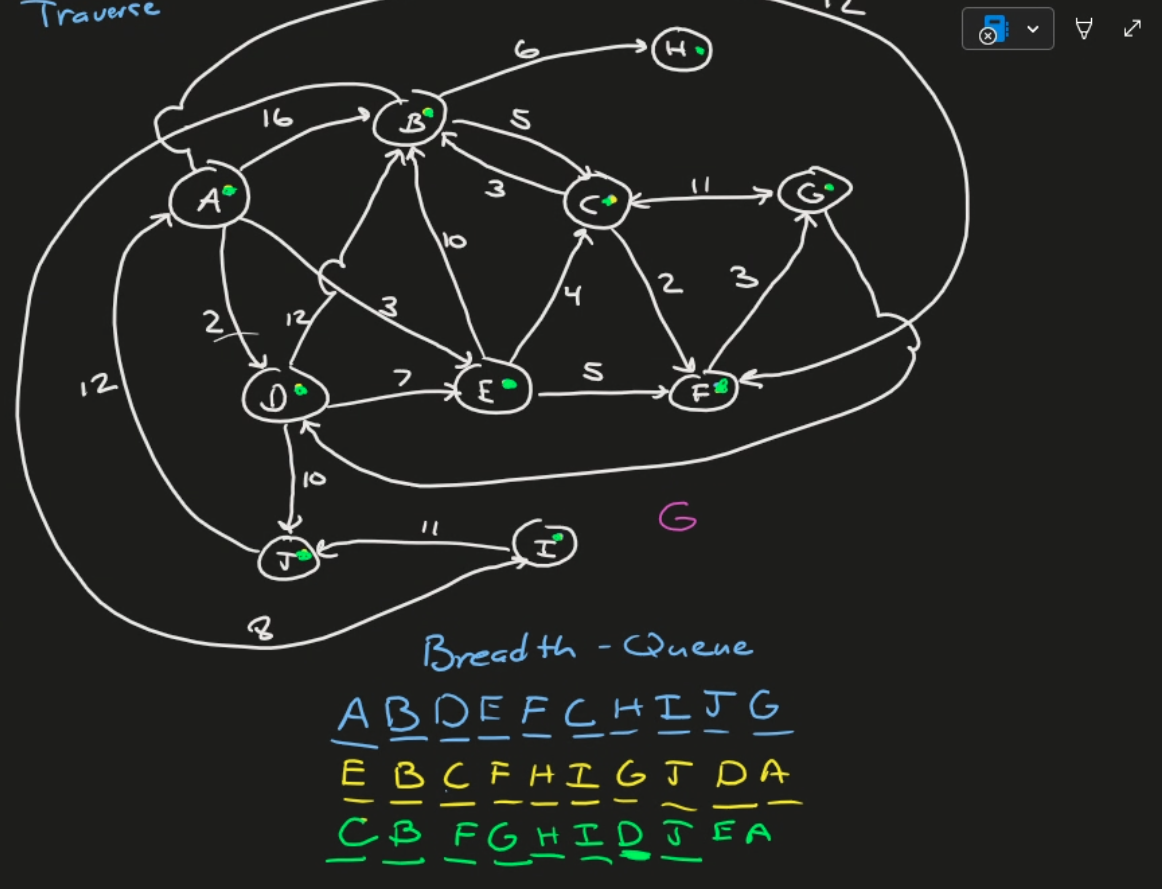 Traverse
12
6
H
16
B
5
3
A
C
11
G
10
2
3
4
2
12
3
12
D
7
E
5
F
10
G
11
J
I
8
Breadth - Queue
A B D E F C H I J G
E B C F H I G J D A
C B F G H I D J E A